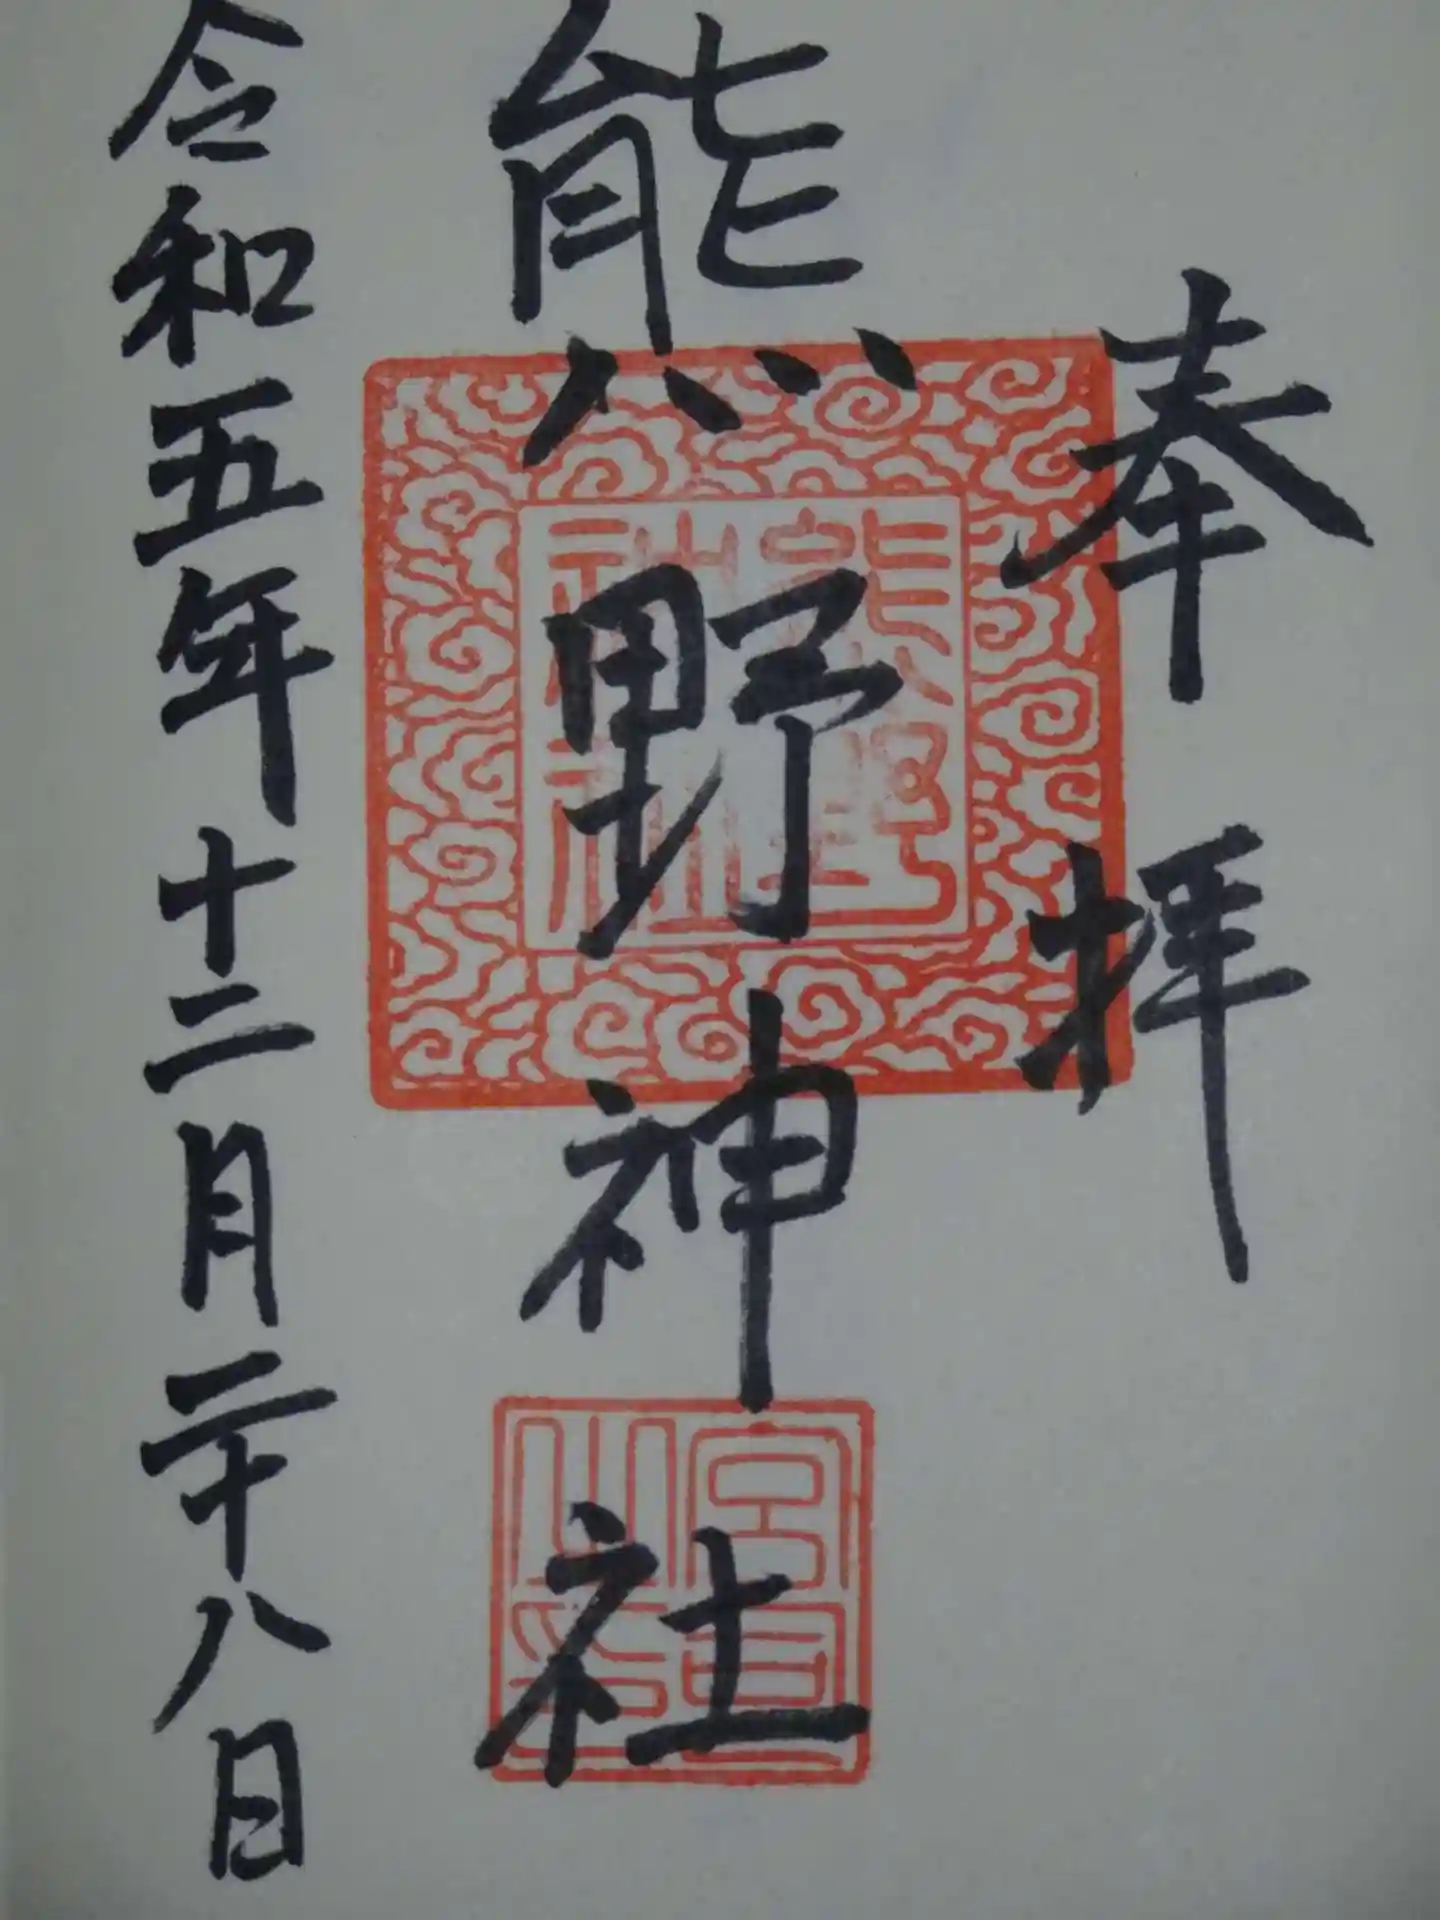 奉拝
熊野神社
令和五年十二月二十八日
熊野
神社
宮司
之印